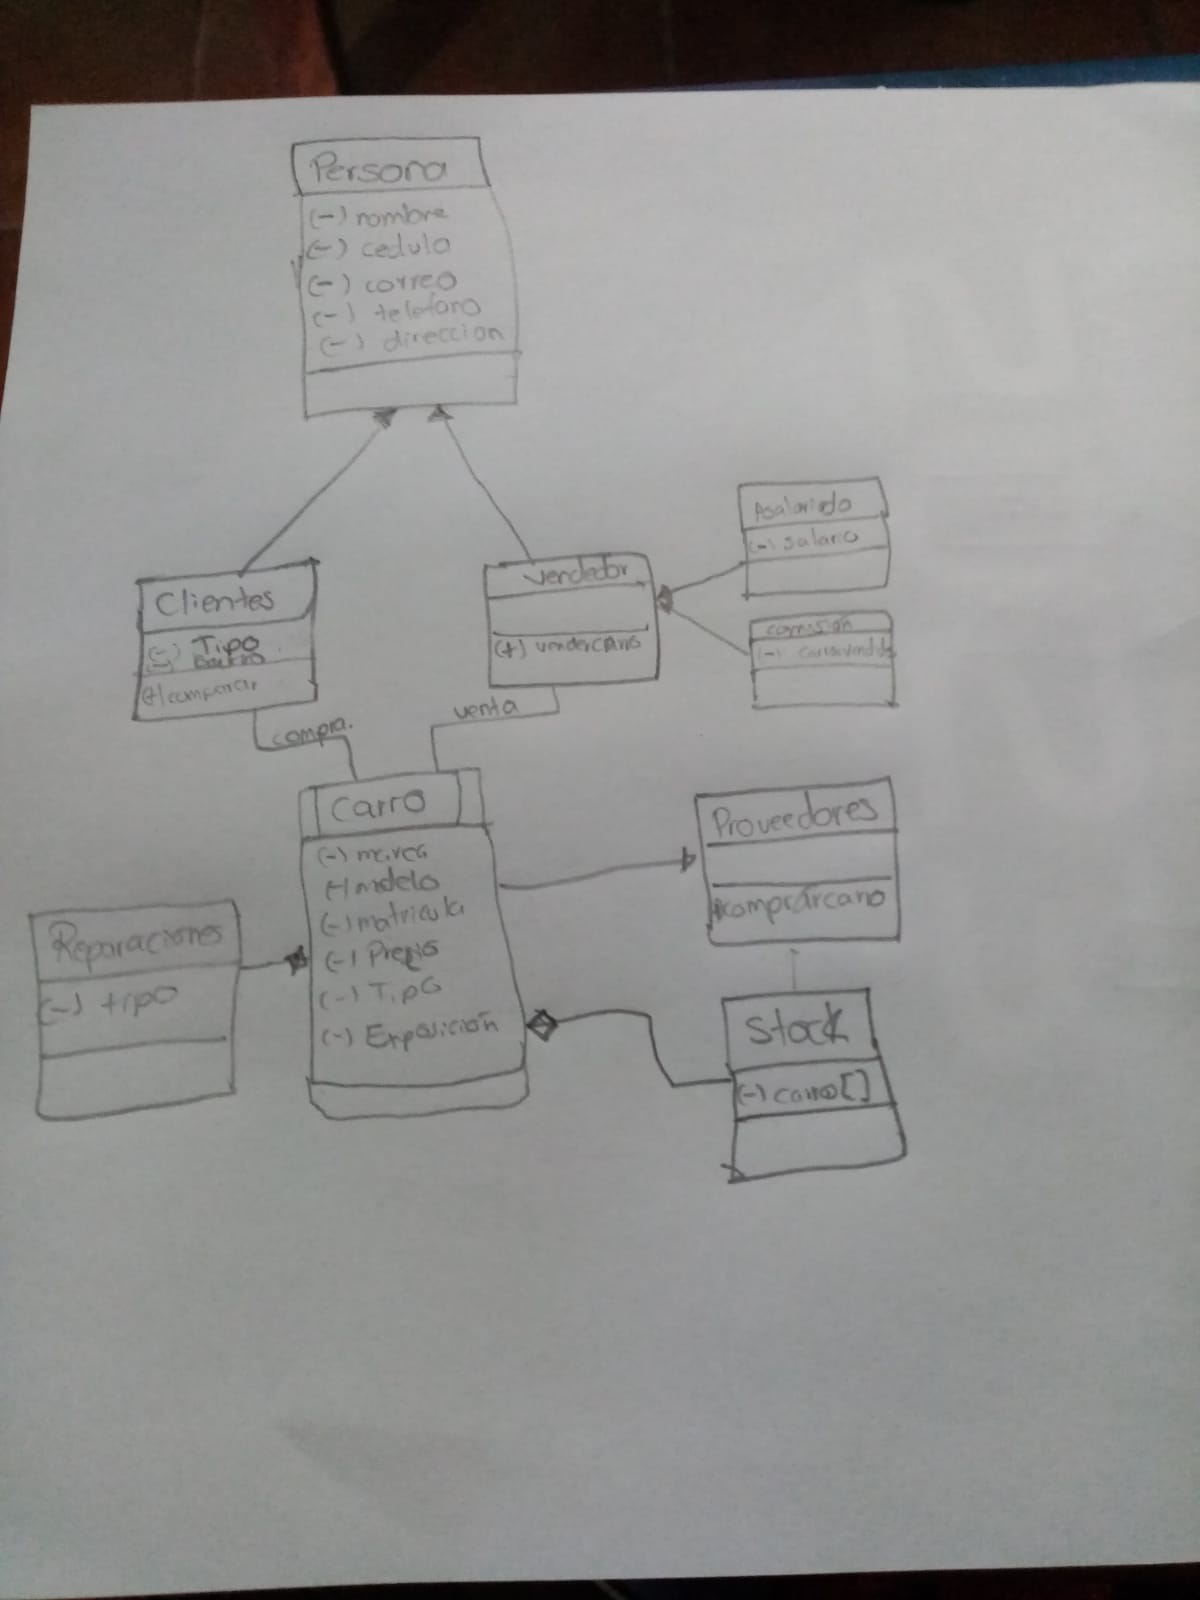 Persona
(-) nombre
(-) cedula
(-) correo
(-) telefono
(-) direccion
Asalariado
(-) salario
Clientes
(-) Tipo
(+) comparar
Vendedor
(+) venderCarro
comisión
(-)
compra.
venta
Carro
(-) marca
(-) modelo
(-) matricula
(-) Precio
(-) Tipo
(-) Exposición
Proveedores
+comprarcarro
Reparaciones
(-) tipo
Stock
(-) carro []